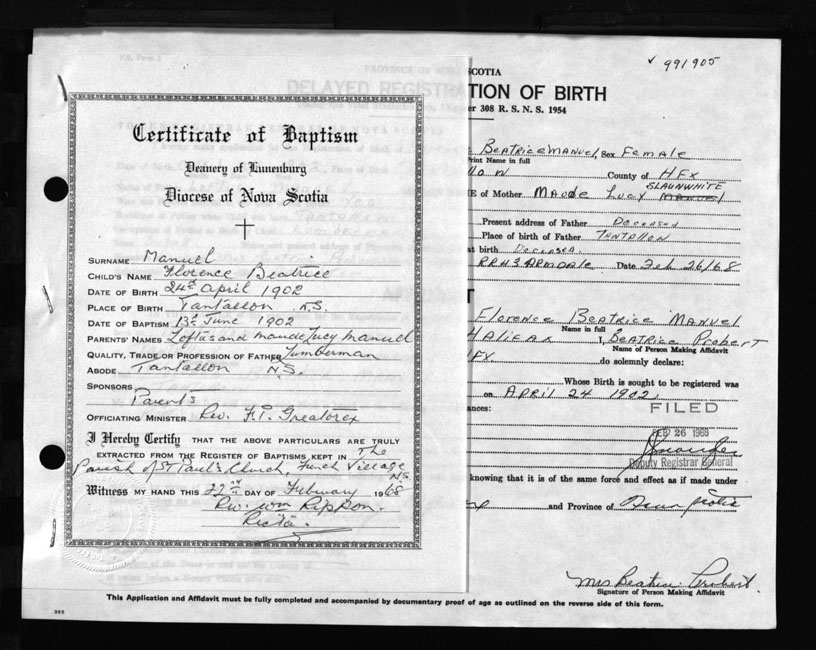 991905
Certificate of Baptism
Deanery of Lunenburg
Diocese of Nova Scotia
SURNAME Manuel
CHILD'S NAME Florence Beatrice
DATE OF BIRTH 24th April 1902
PLACE OF BIRTH Tantallon N.S.
DATE OF BAPTISM 13th June 1902
PARENTS' NAMES Loftus and Maude Lucy Manuel
QUALITY, TRADE OR PROFESSION OF FATHER Lumberman
ABODE Tantallon N.S.
SPONSORS
Parents
OFFICIATING MINISTER Rev. F.P. Greatorex
I Hereby Certify THAT THE ABOVE PARTICULARS ARE TRULY
EXTRACTED FROM THE REGISTER OF BAPTISMS KEPT IN The
Parish of St Paul's Church, French Village
N.S.
Witness MY HAND THIS 22nd DAY OF February 1968
Rev. Wm Rippon.
SCOTIA
TION OF BIRTH
308 R. S. N. S. 1954
BEATRICE MANUEL, Sex FEMALE
Print Name in full
County of HFX
SLAUNWHITE
E of Mother MAUDE LUCY MANUEL
Present address of Father DECEASED
Place of birth of Father TANTALLON
at birth DECEASED
RR#5 ARMDALE Date Feb 26/68
T
FLORENCE BEATRICE MANUEL
Name in full
HALIFAX I, BEATRICE PROBERT
Name of Person Making Affidavit
HFX do solemnly declare:
Whose Birth is sought to be registered was
on APRIL 24 1902
ances:
FILED
FEB 26 1968
Deputy Registrar General
knowing that it is of the same force and effect as if made under
and Province of Nova Scotia
Mrs Beatrice Probert.
Signature of Person Making Affidavit
This Application and Affidavit must be fully completed and accompanied by documentary proof of age as outlined on the reverse side of this form.